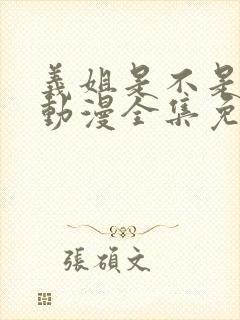 義姐是不是
動漫全集免
張碩文